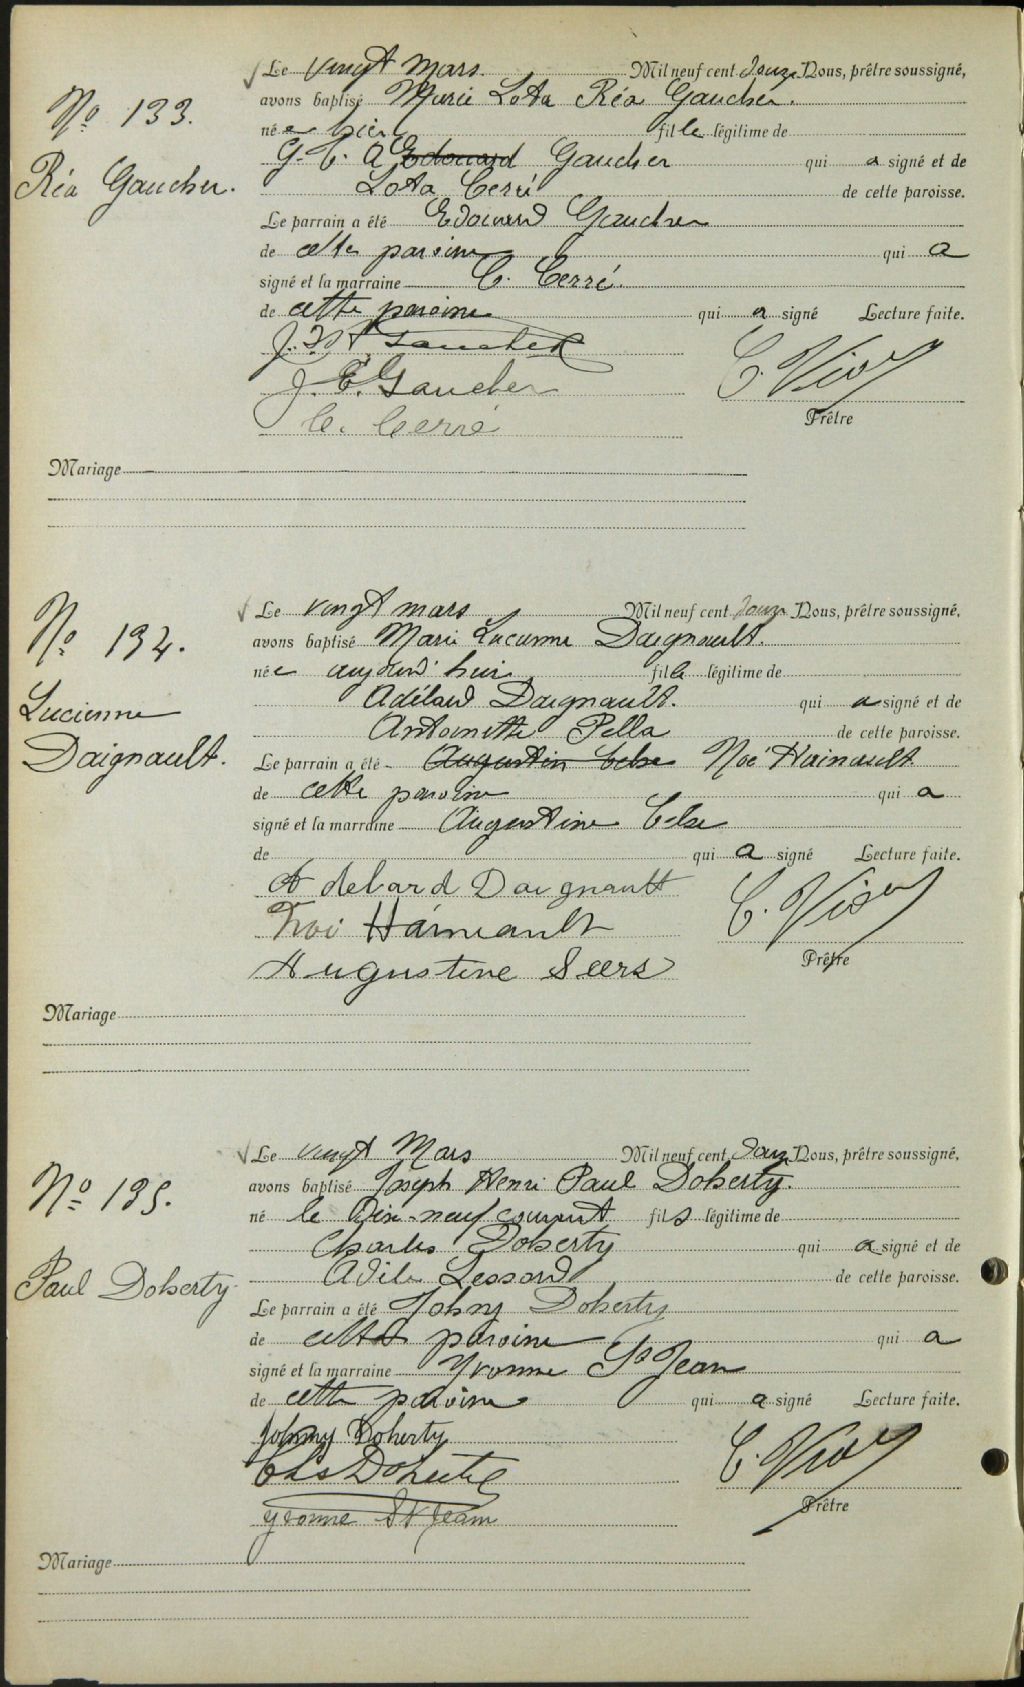 Nº 133.
Réa Gaucher.
Le vingt mars Mil neuf cent douze Nous, prêtre soussigné,
avons baptisé Marie Lota Réa Gaucher.
née hier fille légitime de
G. C. A Edouard Gaucher qui a signé et de
Lota Cerré de cette paroisse.
Le parrain a été Edouard Gaucher
de cette paroisse qui a
signé et la marraine C. Cerré.
de cette paroisse qui a signé Lecture faite.
Gaucher
J. E. Gaucher
C. Cerré
C. Viau
Prêtre
Mariage
Nº 134.
Lucienne
Daignault.
Le vingt mars Mil neuf cent douze Nous, prêtre soussigné,
avons baptisé Marie Lucienne Daignault.
née aujourd'hui fille légitime de
Adélard Daignault. qui a signé et de
Antoinette Pella de cette paroisse.
Le parrain a été Augustin Celse Noé Hainault
de cette paroisse qui a
signé et la marraine Augustine Celse
de qui a signé Lecture faite.
Adelard Daignault
Noé Hainault
Augustine Seers
C. Viau
Prêtre
Mariage
Nº 135.
Paul Doherty
Le vingt Mars Mil neuf cent douze Nous, prêtre soussigné,
avons baptisé Joseph Henri Paul Doherty.
né le dix-neuf courant fils légitime de
Charles Doherty qui a signé et de
Adile Lessard de cette paroisse.
Le parrain a été Johny Doherty
de cette paroisse qui a
signé et la marraine Yvonne St Jean
de cette paroisse qui a signé Lecture faite.
Johnny Doherty
Chs Doherty
Yvonne St Jean
C. Viau
Prêtre
Mariage